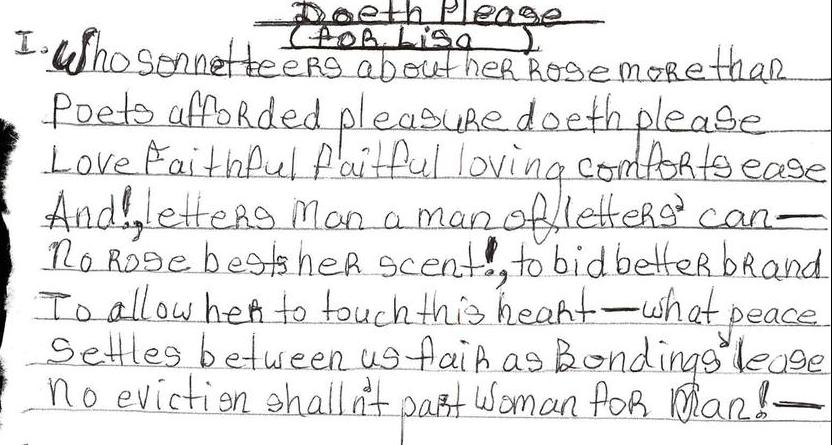 Doeth Please
(for Lisa)
I. Who sonnetteers about her Rose more than
Poets afforded pleasure doeth please
Love Faithful faitful loving comforts ease
And!, letters Man a man of letters' can—
No Rose bests her scent!, to bid better brand
To allow her to touch this heart—what peace
Settles between us fair as Bondings' lease
No eviction shalln't part Woman for Man!—